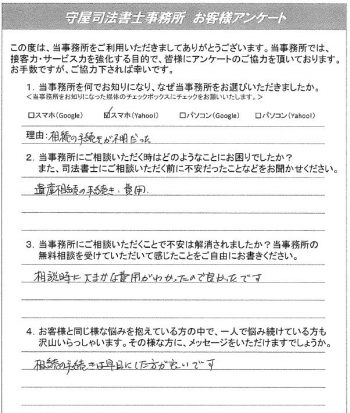 守屋司法書士事務所 お客様アンケート
この度は、当事務所をご利用いただきましてありがとうございます。当事務所では、
接客力・サービス力を強化する目的で、皆様にアンケートのご協力を頂いております。
お手数ですが、ご協力下されば幸いです。
1. 当事務所を何でお知りになり、なぜ当事務所をお選びいただきましたか。
<当事務所をお知りになった媒体のチェックボックスにチェックをお願いいたします。>
□スマホ(Google) ☑スマホ(Yahoo!) □パソコン(Google) □パソコン(Yahoo!)
理由:相続の手続きが不明だった
2. 当事務所にご相談いただく時はどのようなことにお困りでしたか?
また、司法書士にご相談いただく前に不安だったことなどをお聞かせください。
遺産相続の手続き・費用
3. 当事務所にご相談いただくことで不安は解消されましたか?当事務所の
無料相談を受けていただいて感じたことをご自由にお書きください。
相談時に大まかな費用がわかったので良かったです
4. お客様と同じ様な悩みを抱えている方の中で、一人で悩み続けている方も
沢山いらっしゃいます。その様な方に、メッセージをいただけますでしょうか。
相続の手続きは早目にした方が良いです